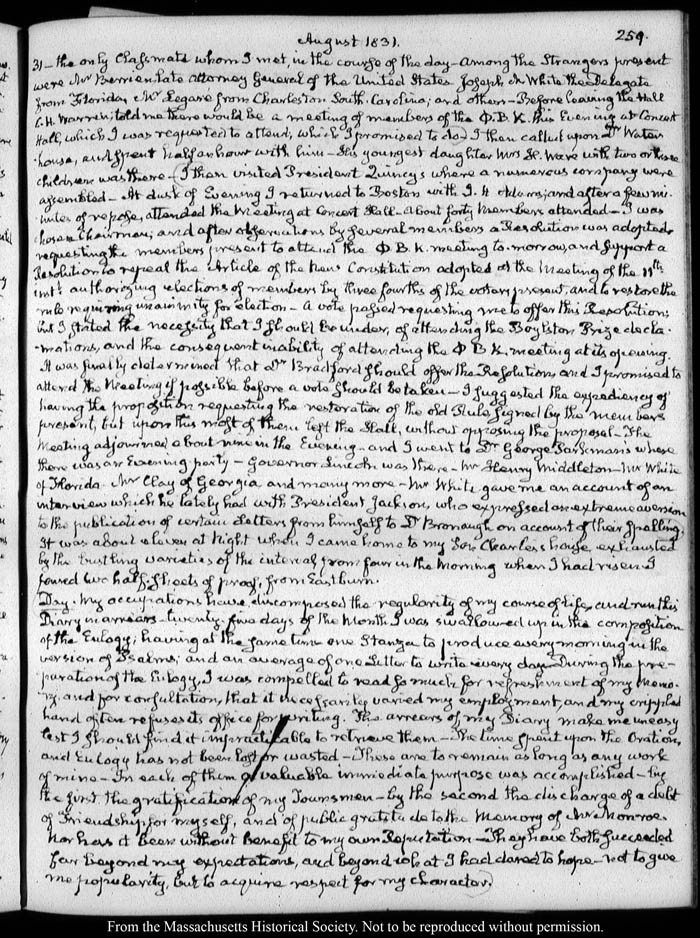 August 1831.
259.
31 — the only Classmate whom I met, in the course of the day — Among the Strangers present
were Mr Berrien late Attorney General of the United States Joseph M White the Delegate
from Florida, Mr Legaré from Charleston South-Carolina; and others — Before leaving the Hall
C. H. Warren, told me there would be a meeting of members of the Φ.B.K. this Evening at Concert
Hall, which I was requested to attend, which I promised to do — I then called upon Dr Water-
-house, and spent half an hour with him — His youngest daughter Mrs H. Ware with two or three
children was there — I then visited President Quincy's where a numerous company were
assembled — At dusk of Evening I returned to Boston with I. H Adams; and after a few mi-
nutes of repose, attended the Meeting at Concert Hall — About forty members attended — I was
chosen Chairman; and after observations by several members a Resolution was adopted,
requesting the members present to attend the Φ B.K. meeting to-morrow, and support a
Resolution to repeal the Article of the new Constitution adopted at the Meeting of the 11th
inst. authorizing elections of members by three fourths of the voters present, and to restore the
rule requiring unanimity for election — A vote passed requesting me to offer this Resolution;
but I stated the necessity that I should be under, of attending the Boylston Prize decla-
-mations, and the consequent inability of attending the Φ B K. meeting at its opening.
It was finally determined that Dr Bradford should offer the Resolution, and I promised to
attend the Meeting if possible before a vote should be taken — I suggested the expediency of
having the proposition requesting the restoration of the old Rule signed by the members
present, but upon this most of them left the Hall, without opposing the proposal — The
Meeting adjourned about nine in the Evening — and I went to Dr George Parkman's where
there was an Evening party — Governor Lincoln was there — Mr Henry Middleton — Mr White
of Florida — Mr Clay of Georgia and many more — Mr White gave me an account of an
interview which he lately had with President Jackson, who expressed an extreme aversion
to the publication of certain Letters from himself to Dr Bronaugh on account of their spelling,
It was about eleven at Night when I came home to my Son Charles's house, exhausted
by the bustling varieties of the interval from four in the Morning when I had risen. I
found two half-sheets of proof, from Eastburn.
Day. My occupations have discomposed the regularity of my course of Life, and run this
Diary in arrears — twenty-five days of the Month I was swallowed up in the composition
of the Eulogy; having at the same time one Stanza to produce every morning in the
version of Psalms; and an average of one Letter to write every day — During the pre-
-paration of the Eulogy, I was compelled to read so much for refreshment of my Memo-
ry, and for consultation, that it necessarily varied my employment, and my crippled
hand often refuses its office for writing. The arrears of my Diary make me uneasy
lest I should find it impracticable to retrieve them — The time spent upon the Oration,
and Eulogy has not been lost or wasted — These are to remain as long as any work
of mine — In each of them a valuable immediate purpose was accomplished — by
the first the gratification of my Townsmen — by the second the discharge of a debt
of Friendship for myself, and of public gratitude to the Memory of Mr Monroe.
Nor has it been without benefit to my own Reputation — They have both succeeded
far beyond my expectations, and beyond what I had dared to hope — not to give
me popularity, but to acquire respect for my character.
From the Massachusetts Historical Society. Not to be reproduced without permission.